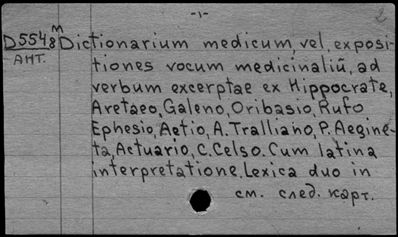 -1- 2
М
D5548 Dictionarium medicum, vel, exposi-
АНТ. tiones vocum medicinaliū, ad
verbum excerptae ex Hippocrate,
Aretaeo, Galeno, Oribasio, Rufo
Ephesio, Aetio, A. Tralliano, P. Aegine-
ta, Actuario, C. Celso. Cum latina
interpretatione. Lexica duo in
см. след. карт.